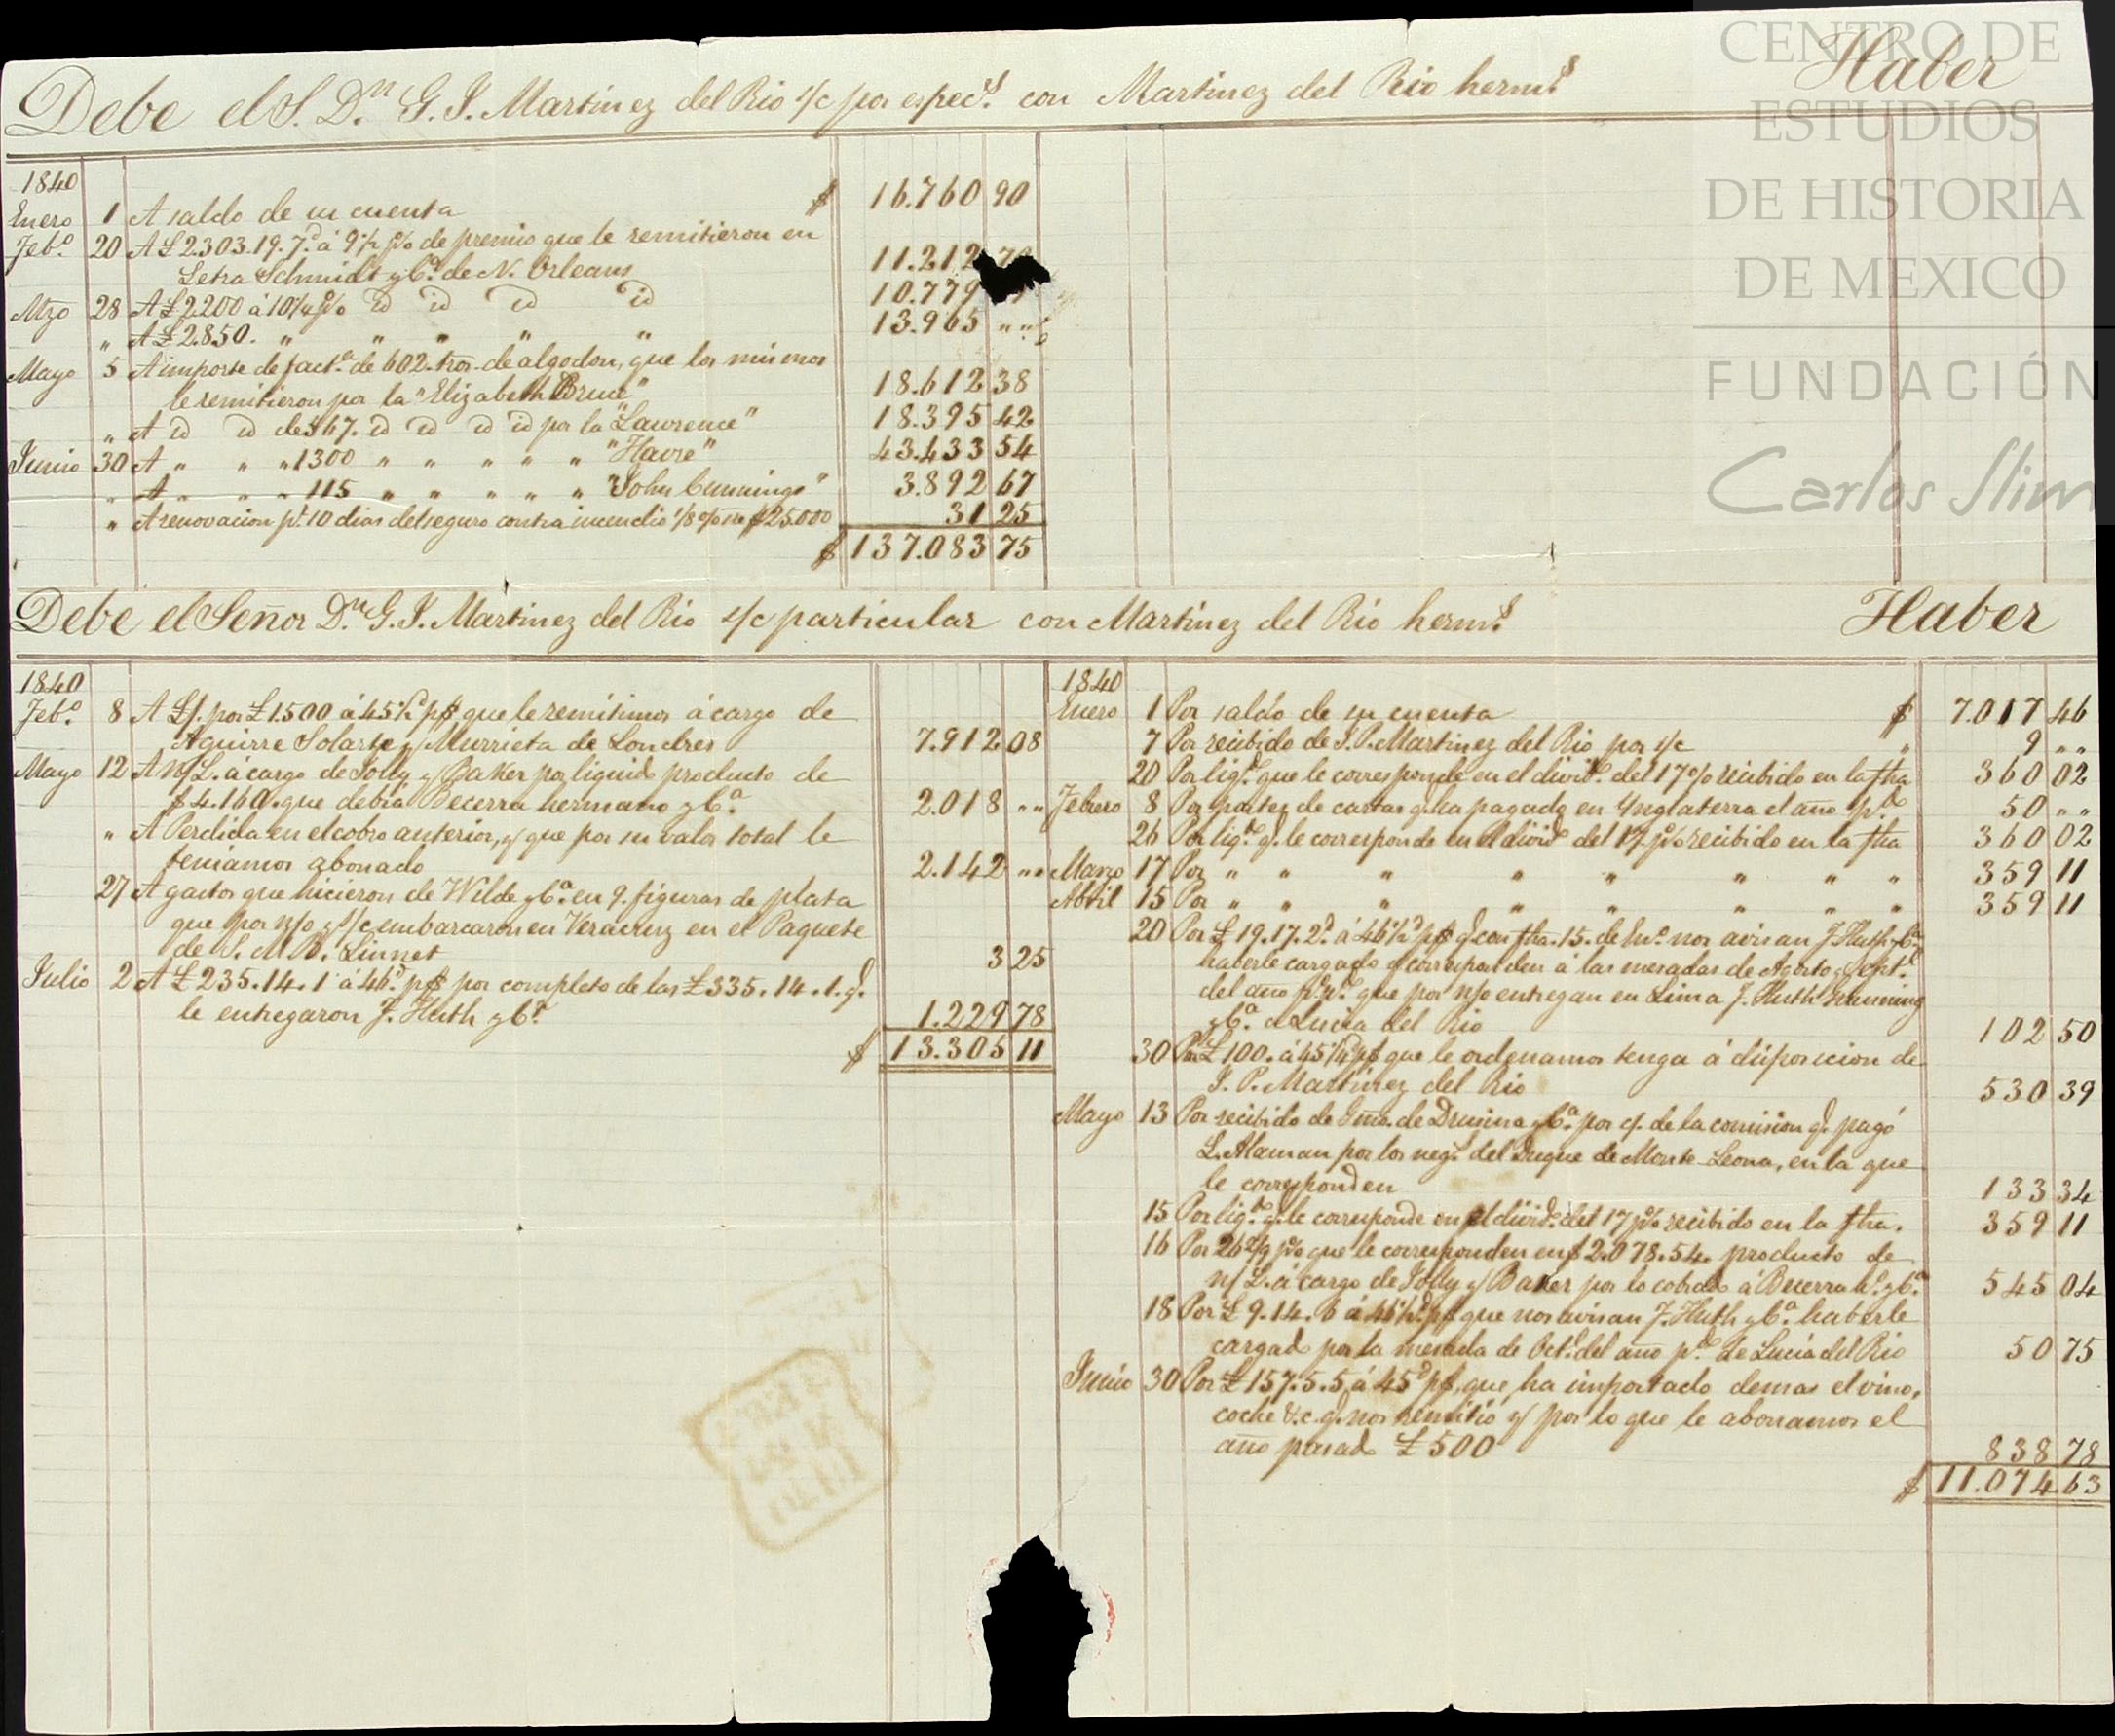 Debe el S. Dn. G. J. Martinez del Rio s/c por especs. con Martinez del Rio herms. Haber
1840
Enero 1 A saldo de su cuenta $ 16.760 90
Febo. 20 A £ 2.303.19.7d. á 9 1/2 p% de premio que le remitieron en
Letra Schmidt y Ca. de N. Orleans 11.212
Mzo 28 A £ 2200 á 10 1/4 p% id id id id 10.779
" A £ 2.850. " " " " " 13.965 " "
Mayo 5 A importe de facta. de 602. tros. de algodon, que los mismos
le remitieron por la "Elizabeth Bruce" 18.612 38
" A id id de 567. id id id id por la "Lawrence" 18.395 42
Junio 30 A " " " 1300 " " " " " "Havre" 43.433 54
" A " " " 115 " " " " " "John Cummings" 3.892 67
" A renovacion pr. 10 dias del seguro contra incendio 1/8 % sre $25.000 31 25
$ 137.083 75
Debe el Señor Dn. G. J. Martinez del Rio s/c particular con Martinez del Rio herms. Haber
1840
Febo. 8 A £/. por £ 1.500 á 45 1/2 p$ que le remitimos á cargo de
Aguirre Solarte y Murrieta de Londres 7.912 08
Mayo 12 A n/L. á cargo de Jolly y Baker por liquido producto de
$ 4.160. que debia Becerra hermano y Ca. 2.018 " "
" A Perdida en el cobro anterior, y que por su valor total le
teniamos abonado 2.142 " "
27 A gastos que hicieron de Wilde y Ca. en 9. figuras de plata
que por n/o y s/c embarcaron en Veracruz en el Paquete
de S. M. B. Linnet 3 25
Julio 2 A £ 235.14.1 á 46d. p$ por completo de las £ 335.14.1. q.
le entregaron J. Huth y Ca. 1.229 78
$ 13.305 11
1840
Enero 1 Por saldo de su cuenta $ 7.017 46
7 Por recibido de J. P. Martinez del Rio por s/c " 9 " "
20 Por liqo. que le corresponde en el divido. del 17 % recibido en la fha 360 02
Febrero 8 Por portes de cartas q. ha pagado en Ynglaterra el año pdo. 50 " "
26 Por liqo. q. le corresponde en el divido del 17. p% recibido en la fha 360 02
Marzo 17 Por " " " " " " " " 359 11
Abril 15 Por " " " " " " " " 359 11
20 Por £ 19.17.2d. á 46 1/2d p$ q. con fha. 15. de Eno. nos avisan J. Huth y Ca.
haberle cargado y corresponden á las mesadas de Agosto y Sept.
del año p. p. que por n/o entregan en Lima J. Huth Grunning
y Ca. a Lucia del Rio 102 50
30 Por £ 100. á 45 1/4d p$ que le ordenamos tenga á disposicion de
J. P. Martinez del Rio 530 39
Mayo 13 Por recibido de Gmo. de Drusina y Ca. por c/. de la comision q. pagó
L. Alaman por los negs. del Duque de Monte Leona, en la que
le corresponden 133 34
15 Por liqo. q. le corresponde en el divido. del 17 p% recibido en la fha. 359 11
16 Por 26 2/9 p% que le corresponden en $ 2.078.54. producto de
n/ L. á cargo de Jolly y Baker por lo cobrado á Becerra ho. y Ca. 545 04
18 Por £ 9.14.6 á 46 1/2d. p$ que nos avisan J. Huth y Ca. haberle
cargado por la mesada de Oct. del año pdo. de Lucia del Rio 50 75
Junio 30 Por £ 157.5.5 á 45d p$, que ha importado demas el vino,
coche &.c. q. nos remitió y por lo que le abonamos el
año pasado £ 500 838 78
$ 11.074 63
CENTRO DE
ESTUDIOS
DE HISTORIA
DE MEXICO
FUNDACIÓN
Carlos Slim